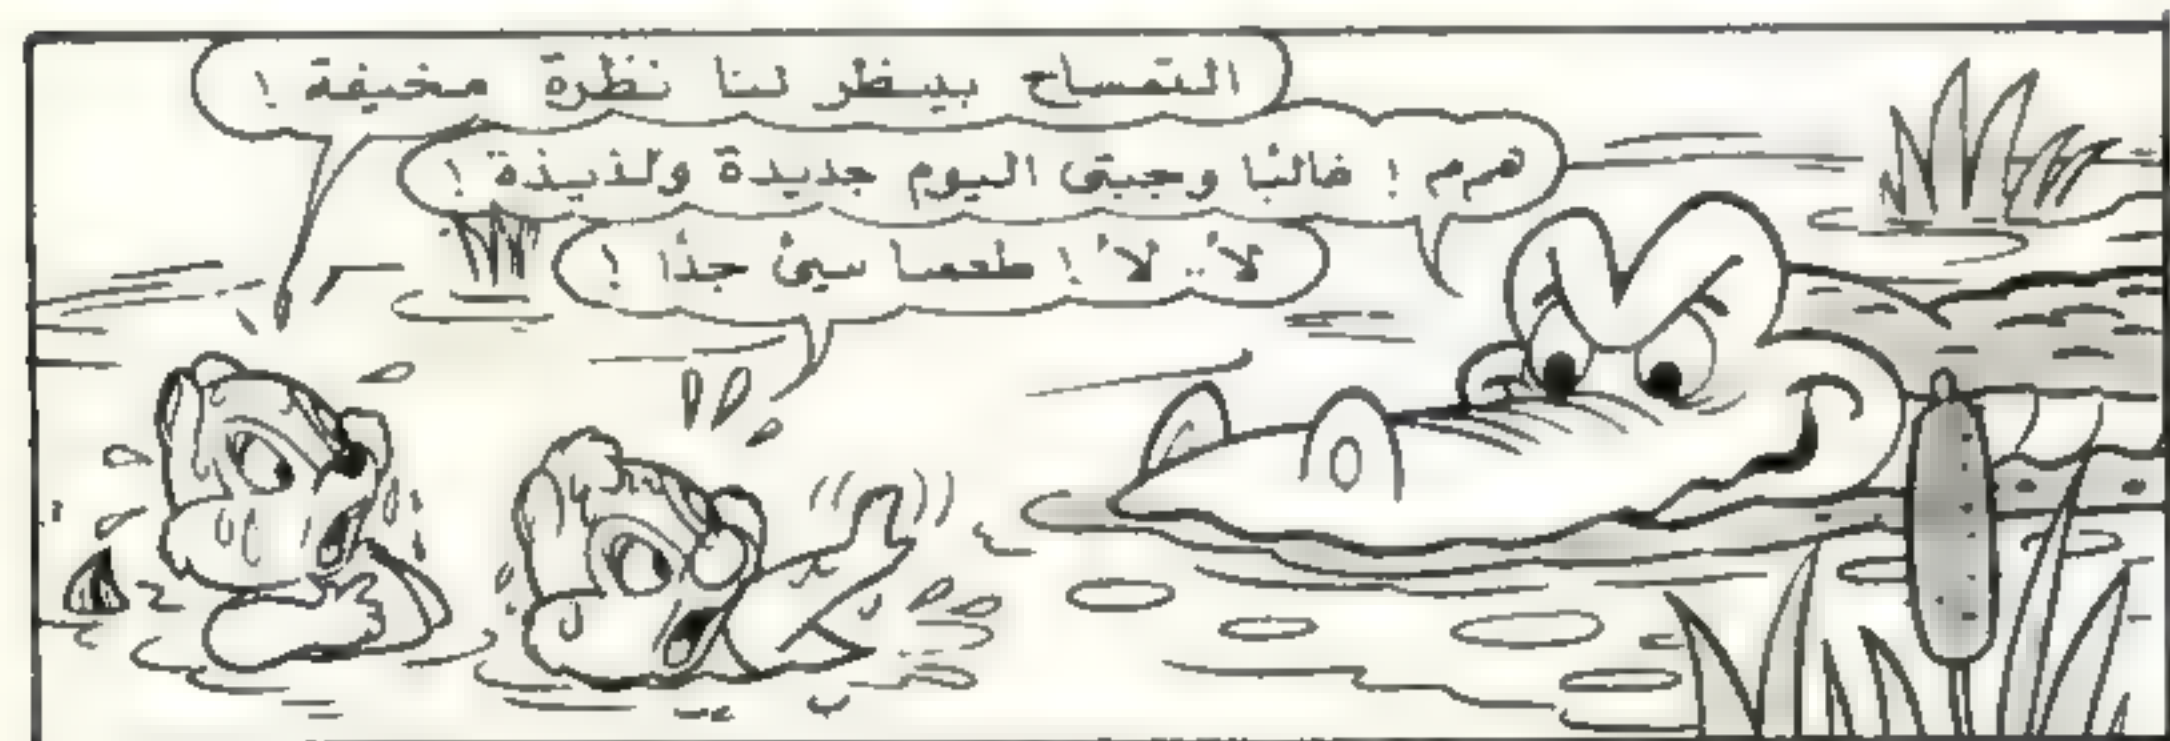 التمساح بيبظر لنا نظرة مخيفة !
همم ! غالبًا وجبتى اليوم جديدة ولذيذة !
لأ .. لأ ! طعمنا سىئ جدًا !